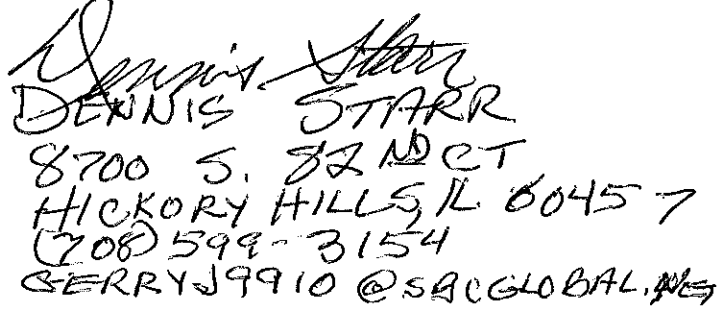 Dennis Starr
DENNIS STARR
8700 S. 82 ND CT
HICKORY HILLS, IL 60457
(708) 599-3154
GERRYJ9910@SBCGLOBAL.NET